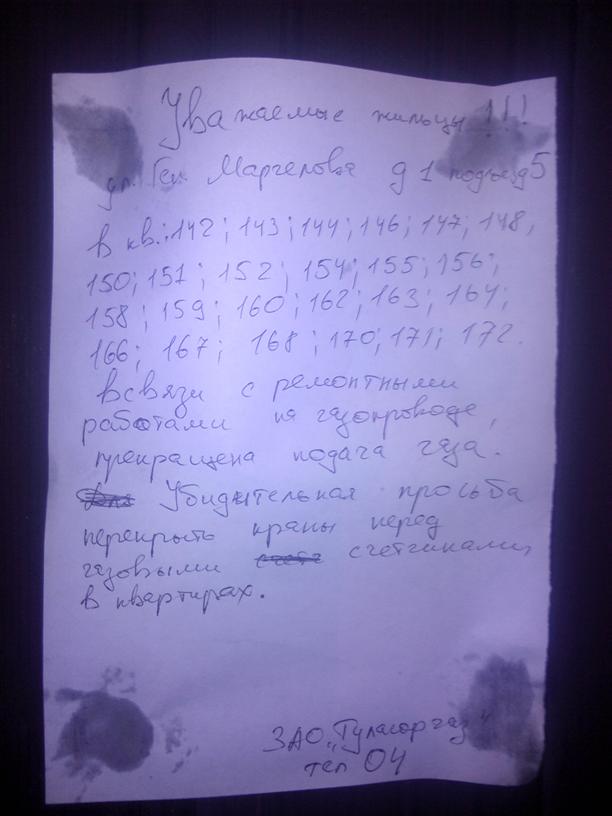 Уважаемые жильцы!!!
ул. Ген. Маргелова д 1 подъезд 5
в кв.: 142; 143; 144; 146; 147; 148,
150; 151; 152; 154; 155; 156;
158; 159; 160; 162; 163; 164;
166; 167; 168; 170; 171; 172.
всвязи с ремонтными
работами на газопроводе,
прекращена подача газа.
Убидительная просьба
перекрыть краны перед
газовыми счетчиками
в квартирах.
ЗАО „Тулагоргаз"
тел 04